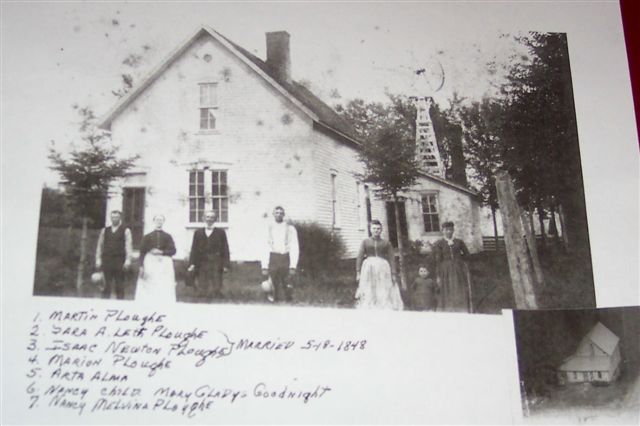 1. MARTIN PLoughe
2. SARA A. Lett Ploughe
3. ISAAC NEWTON Ploughe } MARRIED 5-18-1848
4. MARION Ploughe
5. ARTA ALMA
6. NANCY CHILD MARY GLADYS GOODNIGHT
7. NANCY MELVINA Ploughe